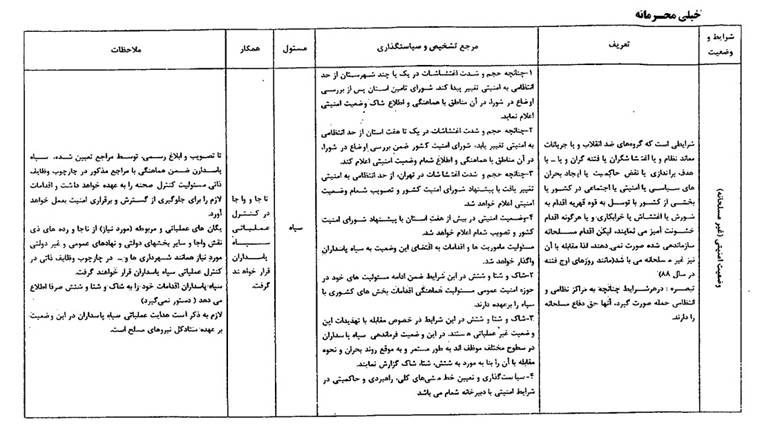 خیلی محرمانه
شرایط و
وضعیت
تعریف
مرجع تشخیص و سیاستگذاری
مسئول
همکار
ملاحظات
وضعیت امنیتی (غیر مسلحانه)
شرایطی است که گروه‌های ضد انقلاب و یا جریانات
معاند نظام و یا اغتشاشگران یا فتنه گران و یا... با
هدف براندازی یا نقض حاکمیت یا ایجاد بحران
های سیاسی یا امنیتی یا اجتماعی در کشور یا
بخشی از کشور با توسل به قوه قهریه اقدام به
شورش یا اغتشاش یا خرابکاری و یا هرگونه اقدام
خشونت آمیز می نمایند، لیکن اقدام مسلحانه
سازماندهی شده صورت نمی دهند، لذا مقابله با آن
نیز غیر مسلحانه می با شد(مانند روزهای اوج فتنه
در سال ۸۸)
تبصره : درهرشرایط چنانچه به مراکز نظامی و
انتظامی حمله صورت گیرد، آنها حق دفاع مسلحانه
را دارند.
۱-چنانچه حجم و شدت اغتشاشات در یک یا چند شهرستان از حد
انتظامی به امنیتی تغییر پیدا کند. شورای تامین استان پس از بررسی
اوضاع در شورا، در آن مناطق با هماهنگی و اطلاع شاک وضعیت امنیتی
اعلام نماید.
۲-چنانچه حجم و شدت اغتشاشات در یک تا هفت استان از حد انتظامی
به امنیتی تغییر یابد، شورای امنیت کشور ضمن بررسی اوضاع در شورا،
در آن مناطق با هماهنگی و اطلاع شعام وضعیت امنیتی اعلام کند.
۳-چنانچه حجم و شدت اغتشاشات در تهران، از حد انتظامی به امنیتی
تغییر یافت با پیشنهاد شورای امنیت کشور و تصویب شعام وضعیت
امنیتی اعلام خواهد شد.
۴-وضعیت امنیتی در بیش از هفت استان با پیشنهاد شورای امنیت
کشور و تصویب شعام اعلام خواهد شد.
مسئولیت ماموریت ها و اقدامات به اقتضای این وضعیت به سپاه پاسداران
واگذار خواهد شد.
۲-شاک و شتا و شتش در این شرایط ضمن ادامه مسئولیت های خود در
حوزه امنیت عمومی مسئولیت هماهنگی اقدامات بخش های کشوری با
سپاه را برعهده دارند.
۳-شاک و شتا و شتش در این شرایط در خصوص مقابله با تهدیدات این
وضعیت غیر عملیاتی هستند. در این وضعیت فرماندهی سپاه پاسداران
در سطوح مختلف موظف اند به طور مستمر و به موقع روند بحران و نحوه
مقابله با آن را بنا به مورد به شتش، شتا، شاک گزارش نمایند.
۴-سیاست‌گذاری و تعیین خط مشی‌های کلی، راهبردی و حاکمیتی در
شرایط امنیتی با دبیرخانه شعام می باشد
سپاه
تاجا و واجا
در کنترل
عملیاتی
سپاه
پاسداران
قرار خواهند
گرفت.
تا تصویب و ابلاغ رسمی، توسط مراجع تعیین شده، سپاه
پاسدارن ضمن هماهنگی با مراجع مذکور در چارچوب وظایف
ذاتی مسئولیت کنترل صحنه را به عهده خواهد داشت و اقدامات
لازم را برای جلوگیری از گسترش و برقراری امنیت بعمل خواهد
آورد.
یگان های عملیاتی و مربوطه (مورد نیاز) از ناجا و رده های ذی
نقش واجا و سایر بخشهای دولتی و نهادهای عمومی و غیر دولتی
مورد نیاز همانند شهرداری ها و... در چارچوب وظایف ذاتی در
کنترل عملیاتی سپاه پاسداران قرار خواهند گرفت.
سپاه پاسداران اقدامات خود را به شاک و شتا و شتش صرفا اطلاع
می دهد ( دستور نمی‌گیرد)
لازم به ذکر است هدایت عملیاتی سپاه پاسداران در این وضعیت
بر عهده ستادکل نیروهای مسلح است.